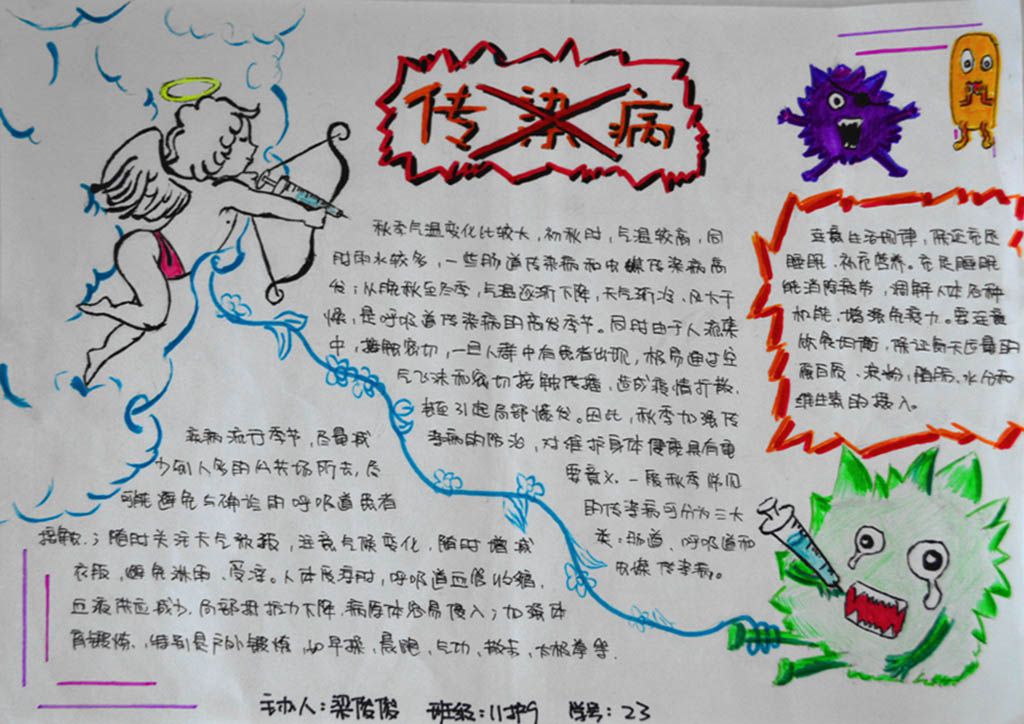 传染病
秋季气温变化比较大，初秋时，气温较高，同
时雨水较多，一些肠道传染病和虫媒传染病高
发；从晚秋至冬季，气温逐渐下降，天气渐冷、且大干
燥，是呼吸道传染病的高发季节。同时由于人流集
中，接触密切，一旦人群中有患者出现，极易通过空
气飞沫和密切接触传播，造成疫情扩散，
甚至引起局部爆发。因此，秋季加强传
染病的防治，对维护身体健康具有重
要意义。一般秋季常见
的传染病可分为三大
类：肠道、呼吸道和
虫媒传染病。
注意生活规律，保证充足
睡眠、补充营养。充足睡眠
能消除疲劳，调解人体各种
机能，增强免疫力。要注意
饮食均衡，保证每天适量的
蛋白质、淀粉，脂肪、水分和
维生素的摄入。
疾病流行季节，尽量减
少到人多的公共场所去，尽
可能避免与确诊的呼吸道患者
接触；随时关注天气预报，注意气候变化，随时增减
衣服，避免淋雨、受凉。人体受凉时，呼吸道血管收缩，
血液供应减少，局部抵抗力下降，病原体容易侵入；加强体
育锻炼，特别是户外锻炼，如早操，晨跑，气功，散步，太极拳等.
主办人：梁俊俊 班级：11护9 学号：23